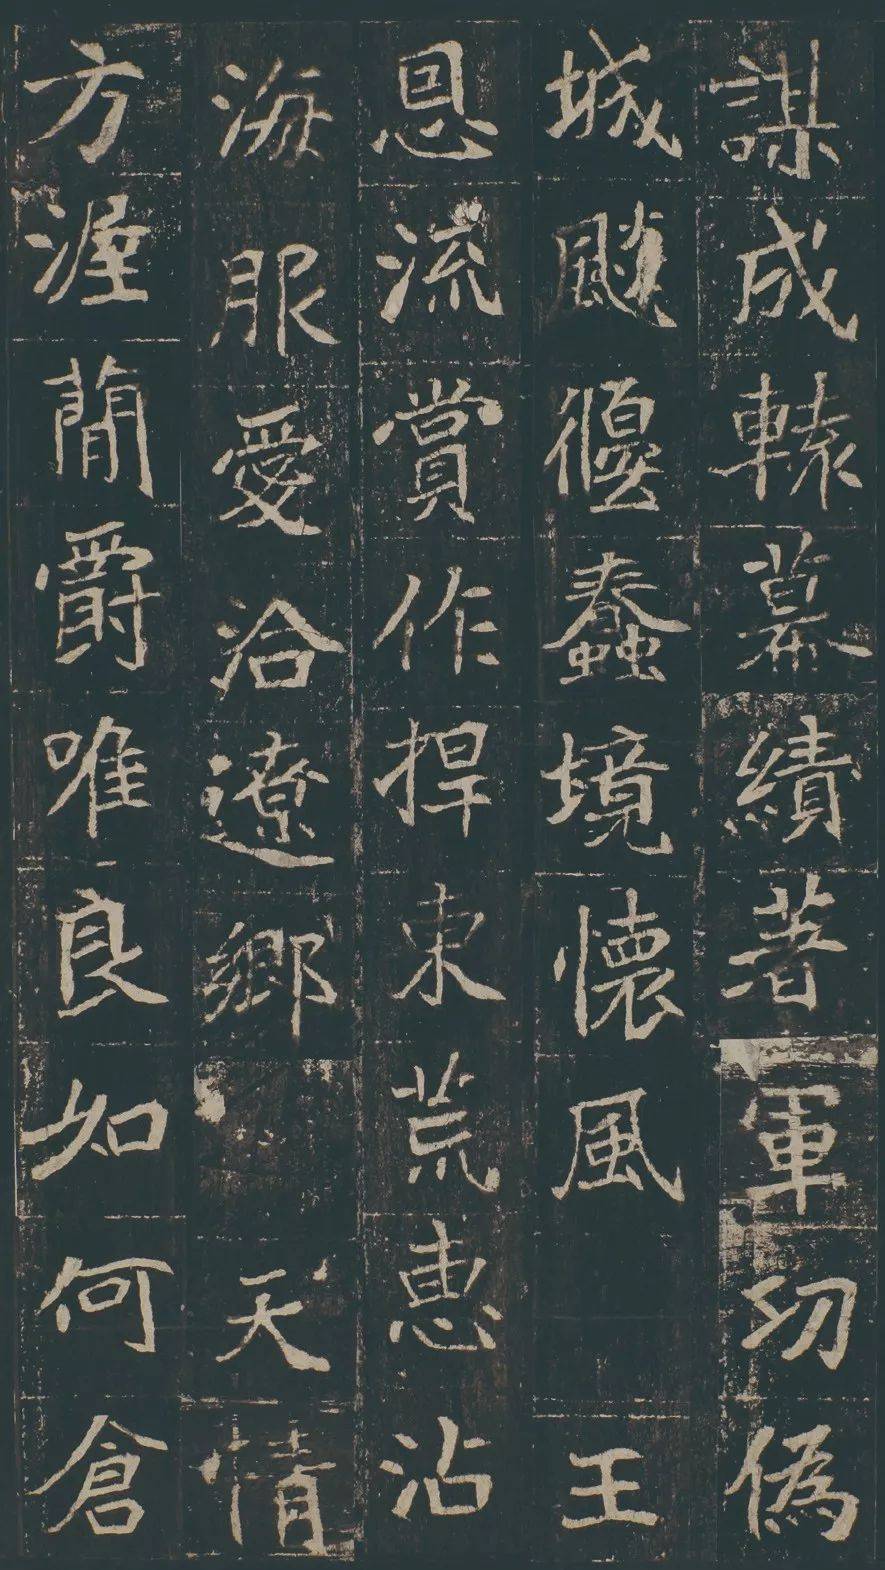 謀成轅幕績著軍功偽
城飈偃蠢境懷風 王
恩流賞作捍東荒惠沾
海服愛洽遼鄉 天情
方渥蕳爵唯良如何倉